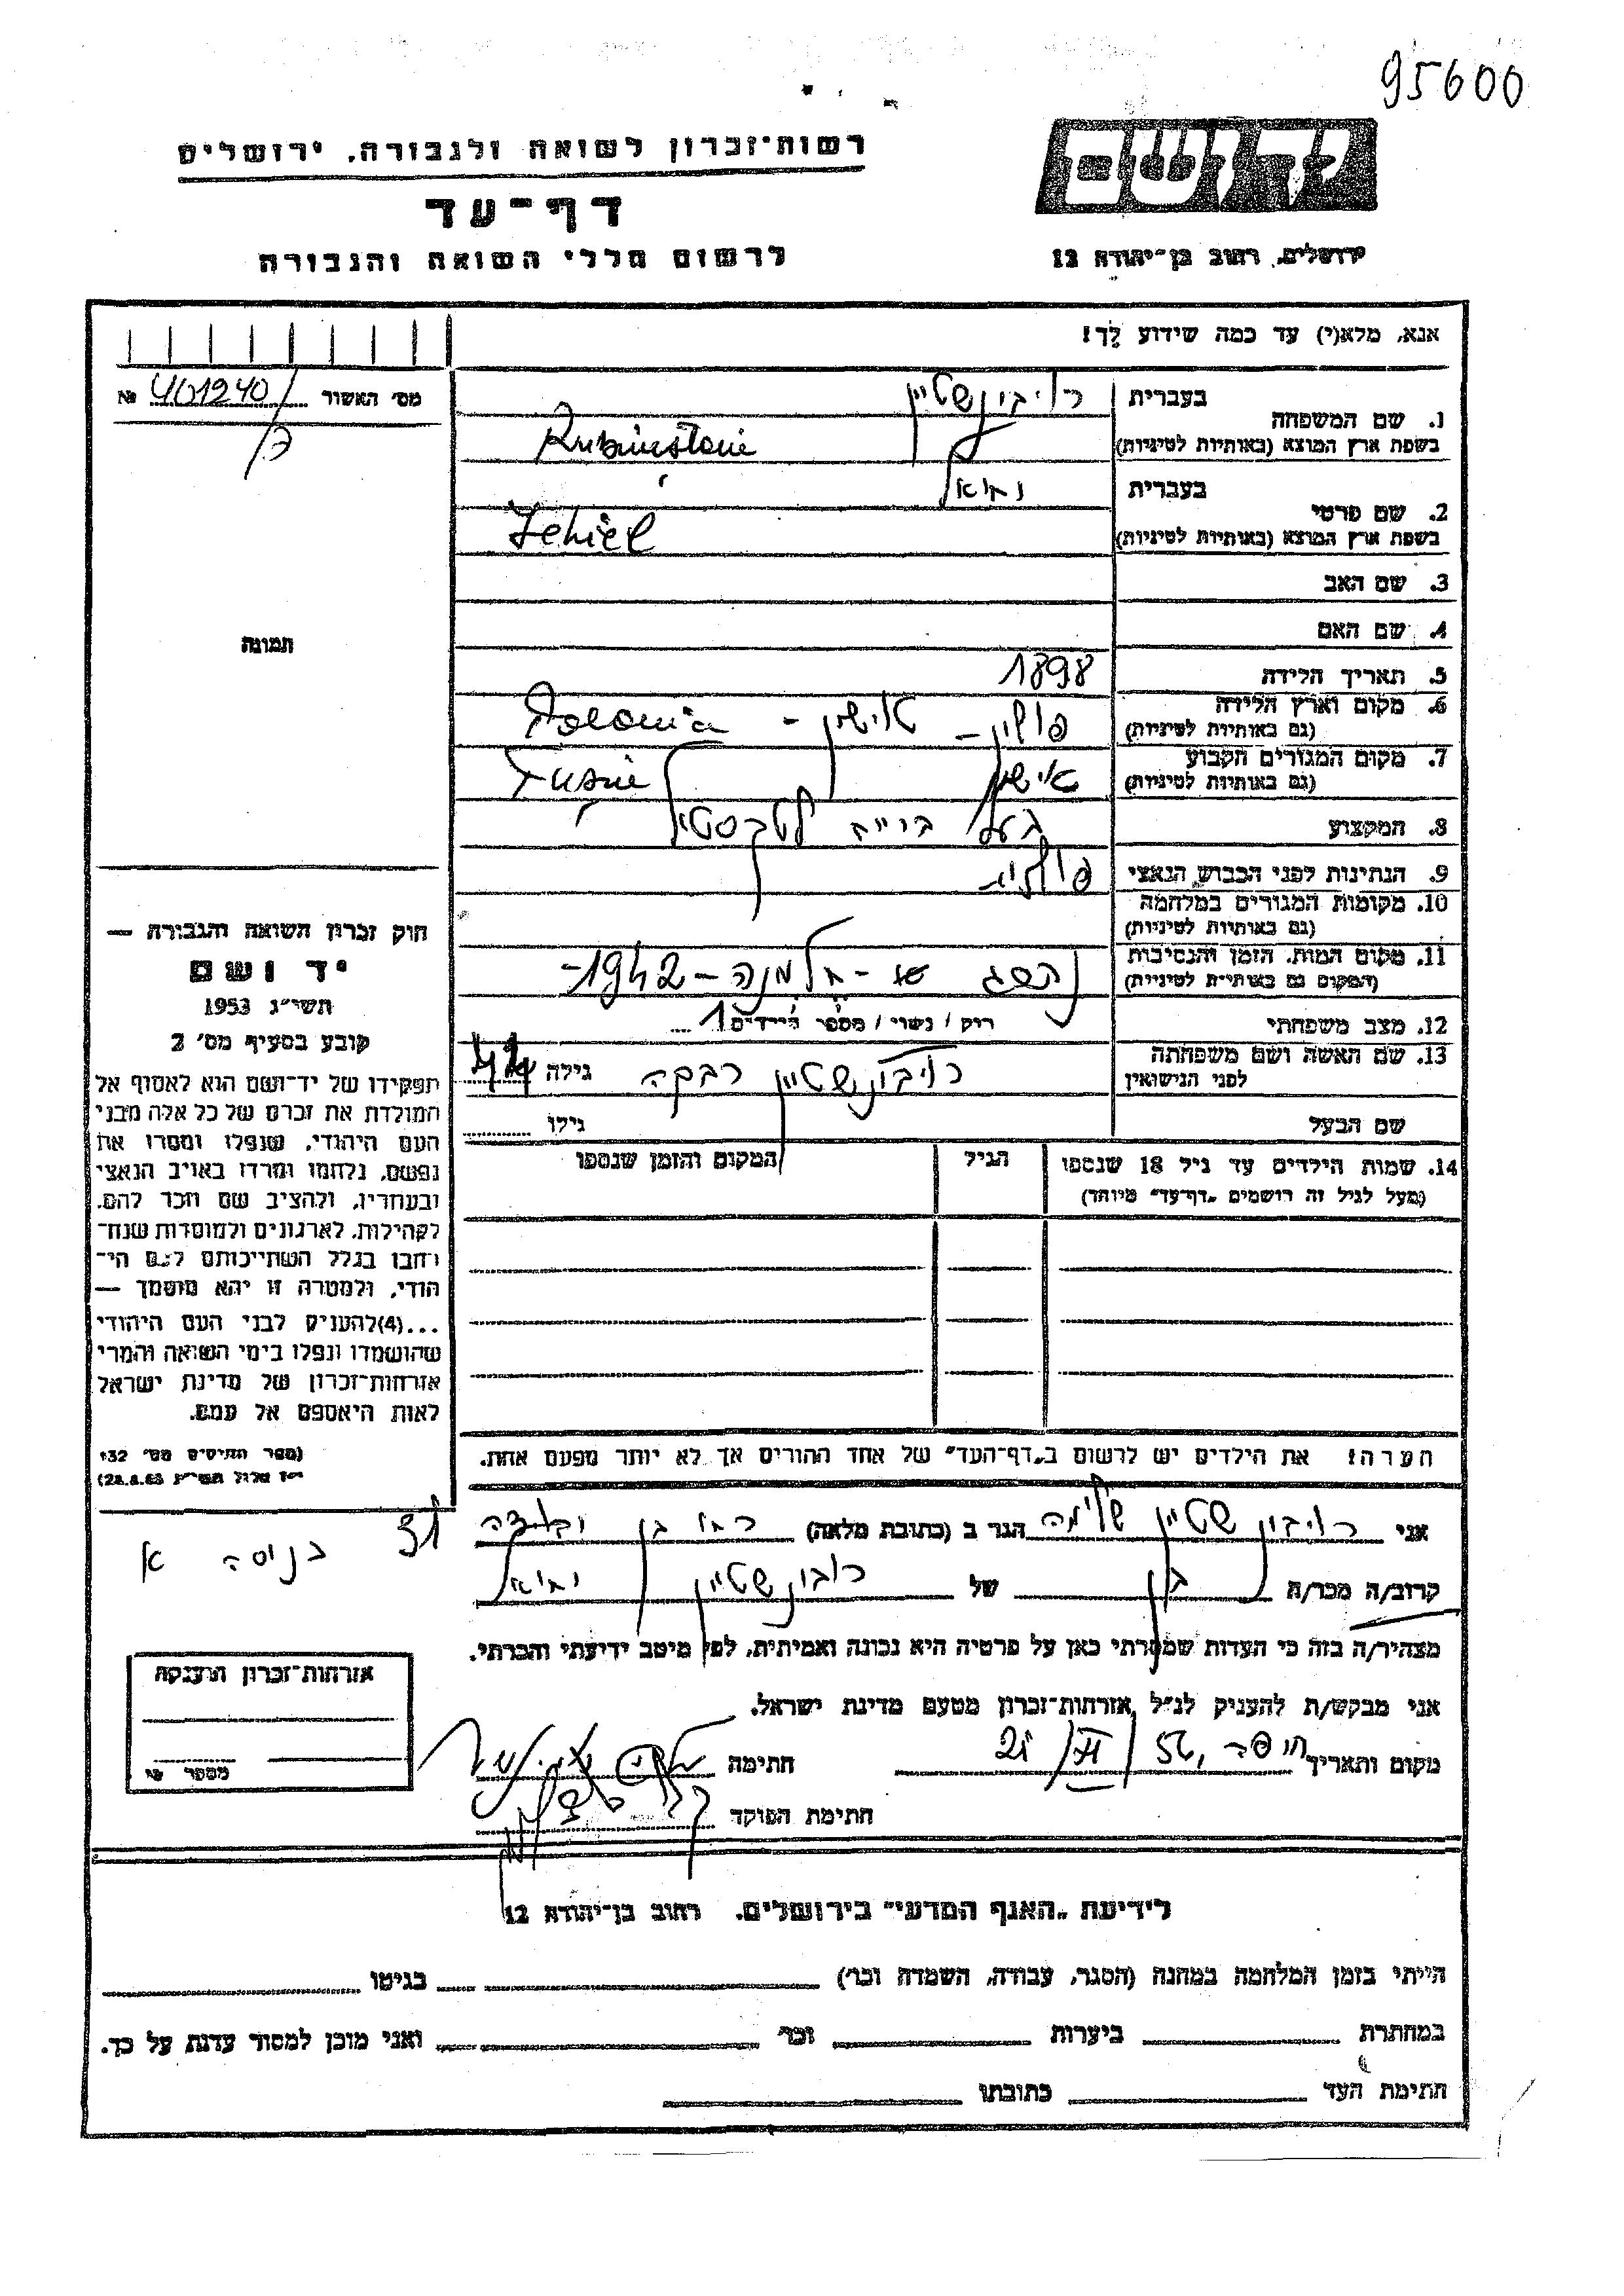 95600
יד ושם
ירושלים, רחוב בן־יהודה 12
רשות־זכרון לשואה ולגבורה, ירושלים
דף־עד
לרשום חללי השואה והגבורה
אנא, מלא(י) עד כמה שידוע לך!
מס׳ האשור № 401240
1. שם המשפחה
בעברית רויבינשטיין
בשפת ארץ המוצא (באותיות לטיניות) Rubinstein
2. שם פרטי
בעברית יחיאל
בשפת ארץ המוצא (באותיות לטיניות) Jehiel
3. שם האב
4. שם האם
תמונה
5. תאריך הלידה 1898
6. מקום וארץ הלידה
(גם באותיות לטיניות) פולין - טושין - Polonia
7. מקום המגורים הקבוע
(גם באותיות לטיניות) טושין Tusin
8. המקצוע בעל בי״ח לטכסטיל
9. הנתינות לפני הכבוש הנאצי פולנית
10. מקומות המגורים במלחמה
(גם באותיות לטיניות)
11. מקום המות, הזמן והנסיבות
(המקום גם באותיות לטיניות) נהרג - חלמנה - 1942 -
12. מצב משפחתי רוק / נשוי / מספר הילדים 1
13. שם האשה ושם משפחתה
לפני הנישואין רויבינשטיין רבקה גילה 44
שם הבעל גילו
14. שמות הילדים עד גיל 18 שנספו
(מעל לגיל זה רושמים „דף־עד״ מיוחד)
הגיל
המקום והזמן שנספו
הערה: את הילדים יש לרשום ב„דף־העד״ של אחד ההורים אך לא יותר מפעם אחת.
חוק זכרון השואה והגבורה —
יד ושם
תשי״ג 1953
קובע בסעיף מס׳ 2
תפקידו של יד־ושם הוא לאסוף אל
המולדת את זכרם של כל אלה מבני
העם היהודי, שנפלו ומסרו את
נפשם, נלחמו ומרדו באויב הנאצי
ובעוזריו, ולהציב שם וזכר להם,
לקהילות, לארגונים ולמוסדות שנח־
רבו בגלל השתייכותם לעם הי־
הודי, ולמטרה זו יהא מוסמך —
...(4) להעניק לבני העם היהודי
שהושמדו ונפלו בימי השואה והמרי
אזרחות־זכרון של מדינת ישראל
לאות היאספם אל עמם.
(ספר החוקים מס׳ 132
י״ז אלול תשי״ג 28.8.53)
אני רויבינשטיין שלמה הגר ב (כתובת מלאה) רח׳ בן יהודה 31
כניסה א
קרוב/ה מכר/ה בן של רובינשטיין יחיאל
מצהיר/ה בזה כי העדות שמסרתי כאן על פרטיה היא נכונה ואמיתית, לפי מיטב ידיעתי והכרתי.
אני מבקש/ת להעניק לנ״ל אזרחות־זכרון מטעם מדינת ישראל.
מקום ותאריך חיפה, 56 חתימה
חתימת הפוקד
אזרחות־זכרון הוענקה
מספר №
לידיעת „האגף המדעי״ בירושלים, רחוב בן־יהודה 12
הייתי בזמן המלחמה במחנה (הסגר, עבודה, השמדה וכו׳) בגיטו
במחתרת ביערות וכו׳ ואני מוכן למסור עדות על כך.
חתימת העד כתובתו